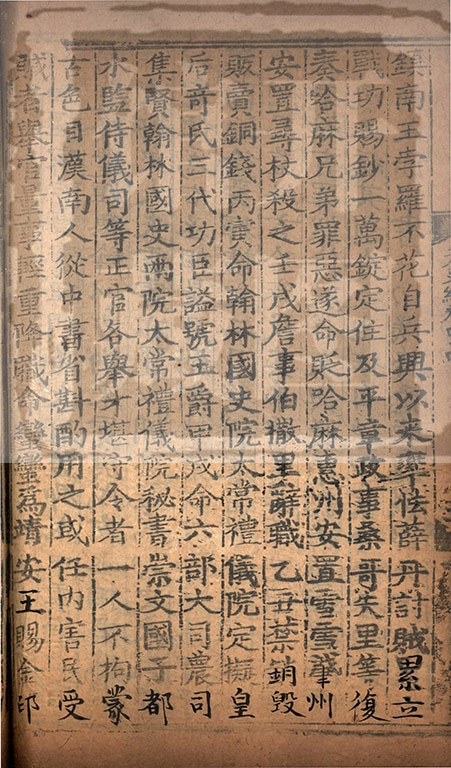 鎮南王孛羅不花自兵興以來率怯薛丹討賊累立
戰功賜鈔一萬錠定住及平章政事桑哥失里等復
奏哈麻兄弟罪惡遂命貶哈麻惠州安置雪雪肇州
安置尋杖殺之壬戌詹事伯撒里辭職乙丑禁銷毀
販賣銅錢丙寅命翰林國史院太常禮儀院定擬皇
后奇氏三代功臣謚號王爵甲戌命六部大司農司
集賢翰林國史兩院太常禮儀院秘書崇文國子都
水監侍儀司等正官各舉才堪守令者一人不拘蒙
古色目漢南人從中書省斟酌用之或任內害民受
贓者舉官量事輕重降職命蠻蠻爲靖安王賜金印